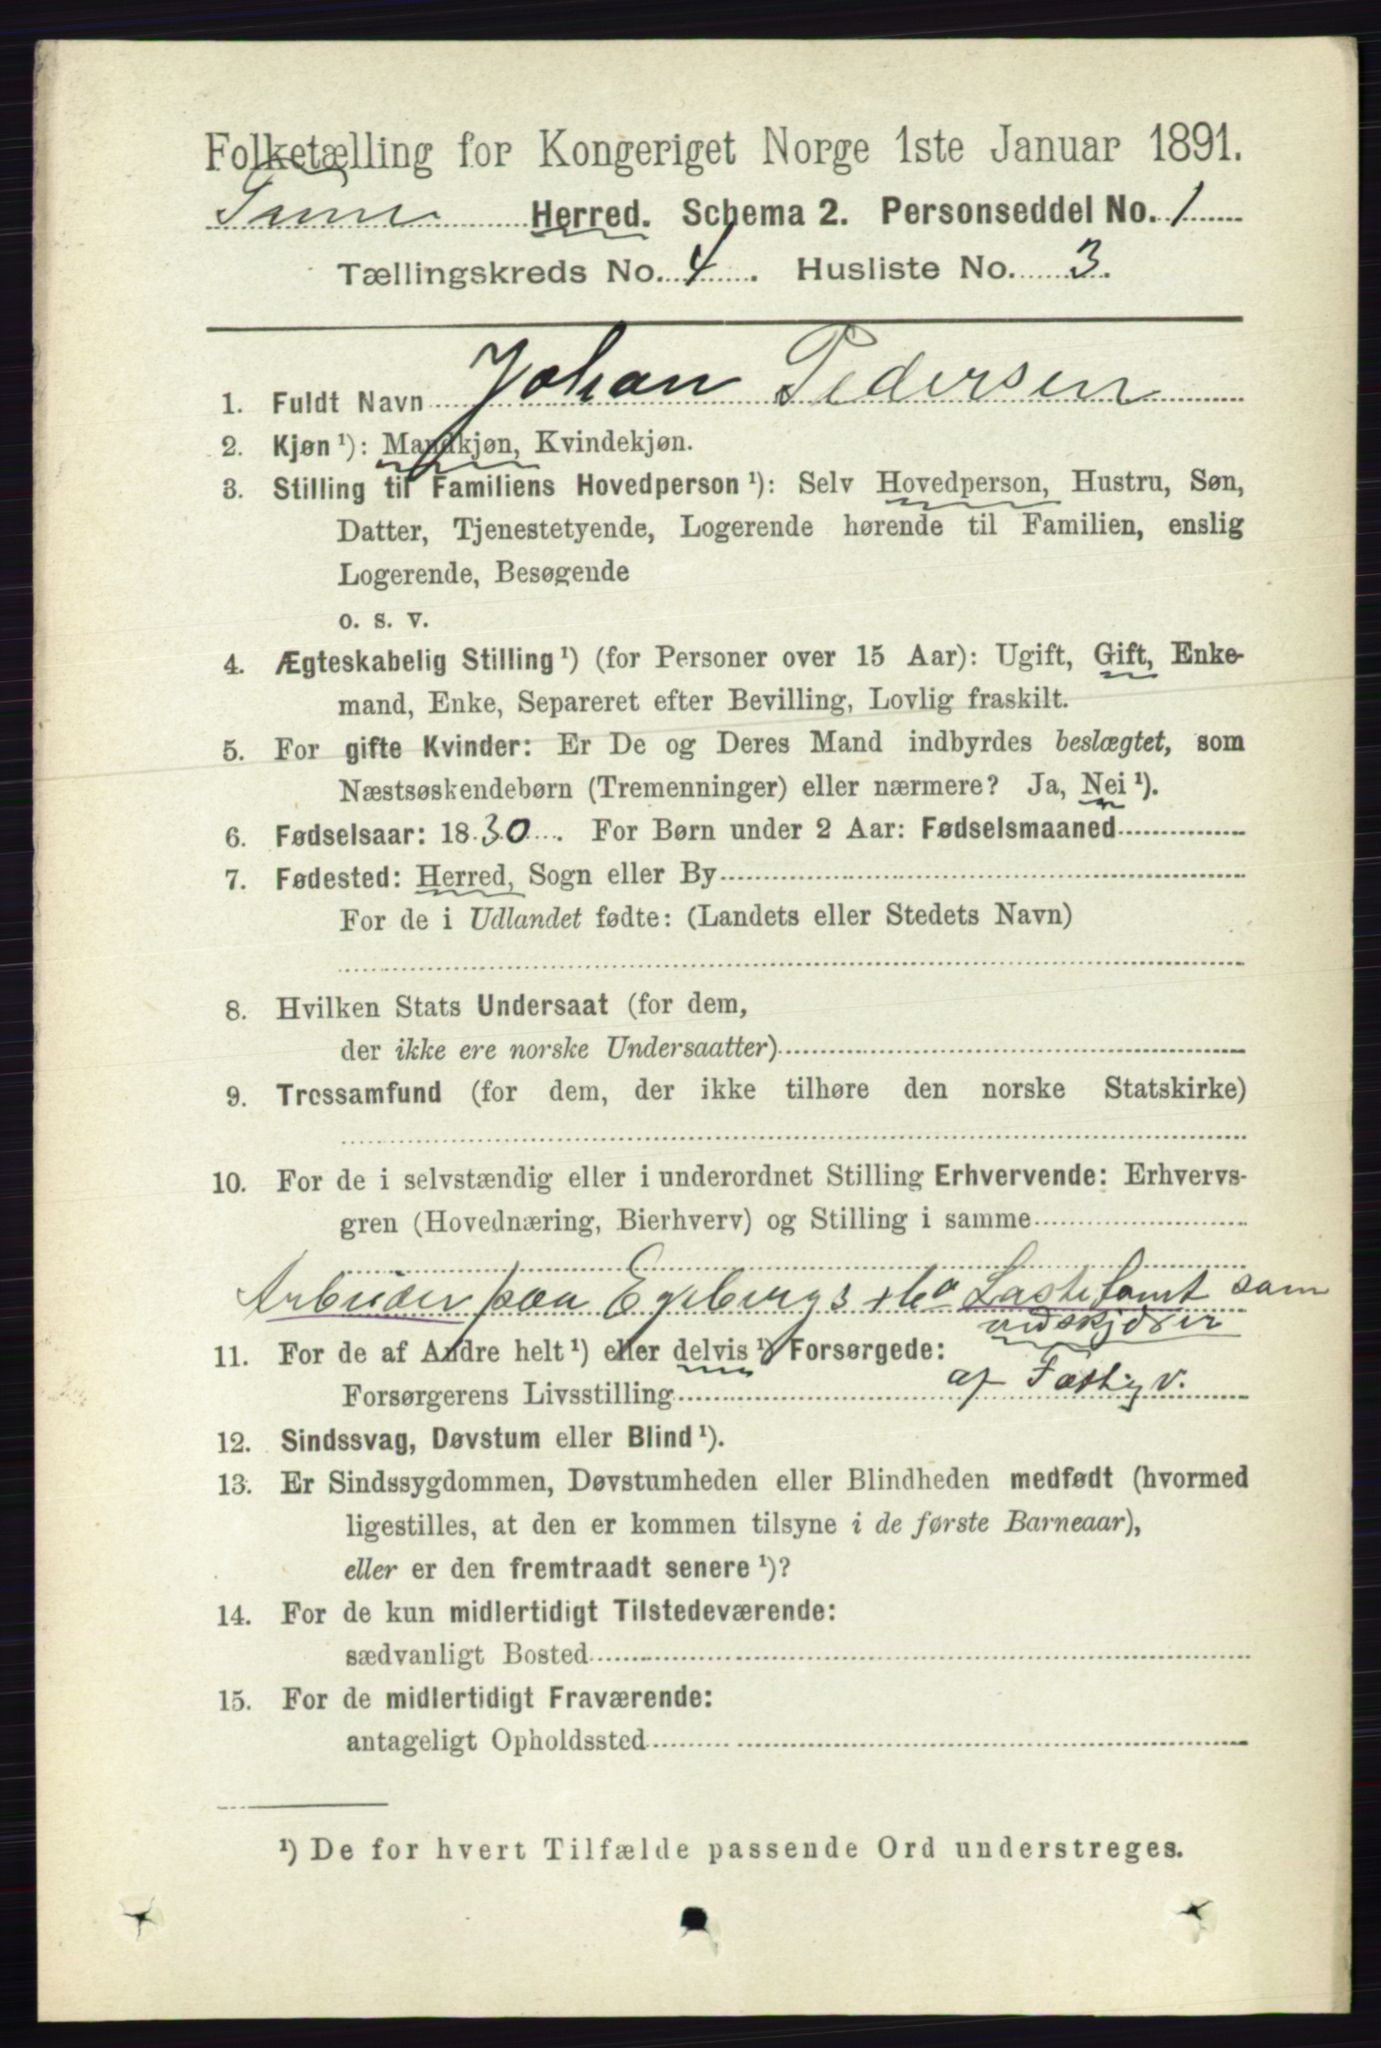 Folketælling for Kongeriget Norge 1ste Januar 1891.
Tune Herred. Schema 2. Personseddel No. 1
Tællingskreds No. 4. Husliste No. 3.
1. Fuldt Navn Johan Pedersen
2. Kjøn ¹): Mandkjøn, Kvindekjøn.
3. Stilling til Familiens Hovedperson ¹): Selv Hovedperson, Hustru, Søn,
Datter, Tjenestetyende, Logerende hørende til Familien, enslig
Logerende, Besøgende
o. s. v.
4. Ægteskabelig Stilling ¹) (for Personer over 15 Aar): Ugift, Gift, Enke-
mand, Enke, Separeret efter Bevilling, Lovlig fraskilt.
5. For gifte Kvinder: Er De og Deres Mand indbyrdes beslægtet, som
Næstsøskendebørn (Tremenninger) eller nærmere? Ja, Nei ¹).
6. Fødselsaar: 1830. For Børn under 2 Aar: Fødselsmaaned
7. Fødested: Herred, Sogn eller By
For de i Udlandet fødte: (Landets eller Stedets Navn)
8. Hvilken Stats Undersaat (for dem,
der ikke ere norske Undersaatter)
9. Trossamfund (for dem, der ikke tilhøre den norske Statskirke)
10. For de i selvstændig eller i underordnet Stilling Erhvervende: Erhvervs-
gren (Hovednæring, Bierhverv) og Stilling i samme
Arbeider paa Egebergs & Co Lastetomt som
vedskjører
11. For de af Andre helt ¹) eller delvis ¹) Forsørgede:
Forsørgerens Livsstilling af Fattigv.
12. Sindssvag, Døvstum eller Blind ¹).
13. Er Sindssygdommen, Døvstumheden eller Blindheden medfødt (hvormed
ligestilles, at den er kommen tilsyne i de første Barneaar),
eller er den fremtraadt senere ¹)?
14. For de kun midlertidigt Tilstedeværende:
sædvanligt Bosted
15. For de midlertidigt Fraværende:
antageligt Opholdssted
¹) De for hvert Tilfælde passende Ord understreges.